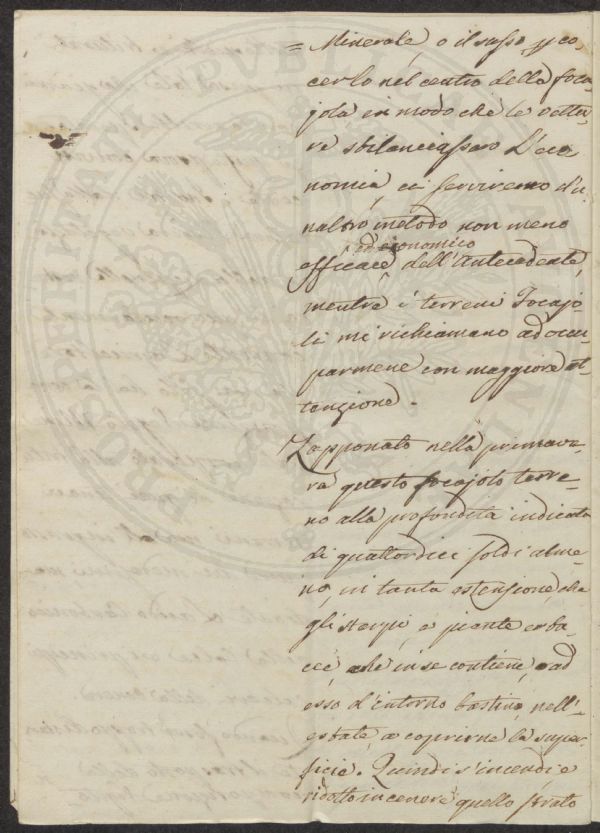 = Minerale, o il sasso,
cerlo nel centro della foca-
jola in modo che le vettu-
re sbilanciassero l'eco
nomia, ci serviremo d'u-
naltro metodo non meno
ed economico
efficace dell'antecedente,
mentre i terreni Focajo-
li mi richiamano ad occu-
parmene con maggiore at-
tenzione.
Zapponato nella primave-
ra questo focajolo terre-
no alla profondità indicata
di quattordici soldi alme-
no, in tanta estensione, che
gli sterpi, e piante erba-
cee che in se contiene, ad
esso d'intorno bastino nell'
estate a coprirne la super-
ficie. Quindi s'incendi e
ridotto in cenere quello strato
PROSPERITATI PUBLICAE